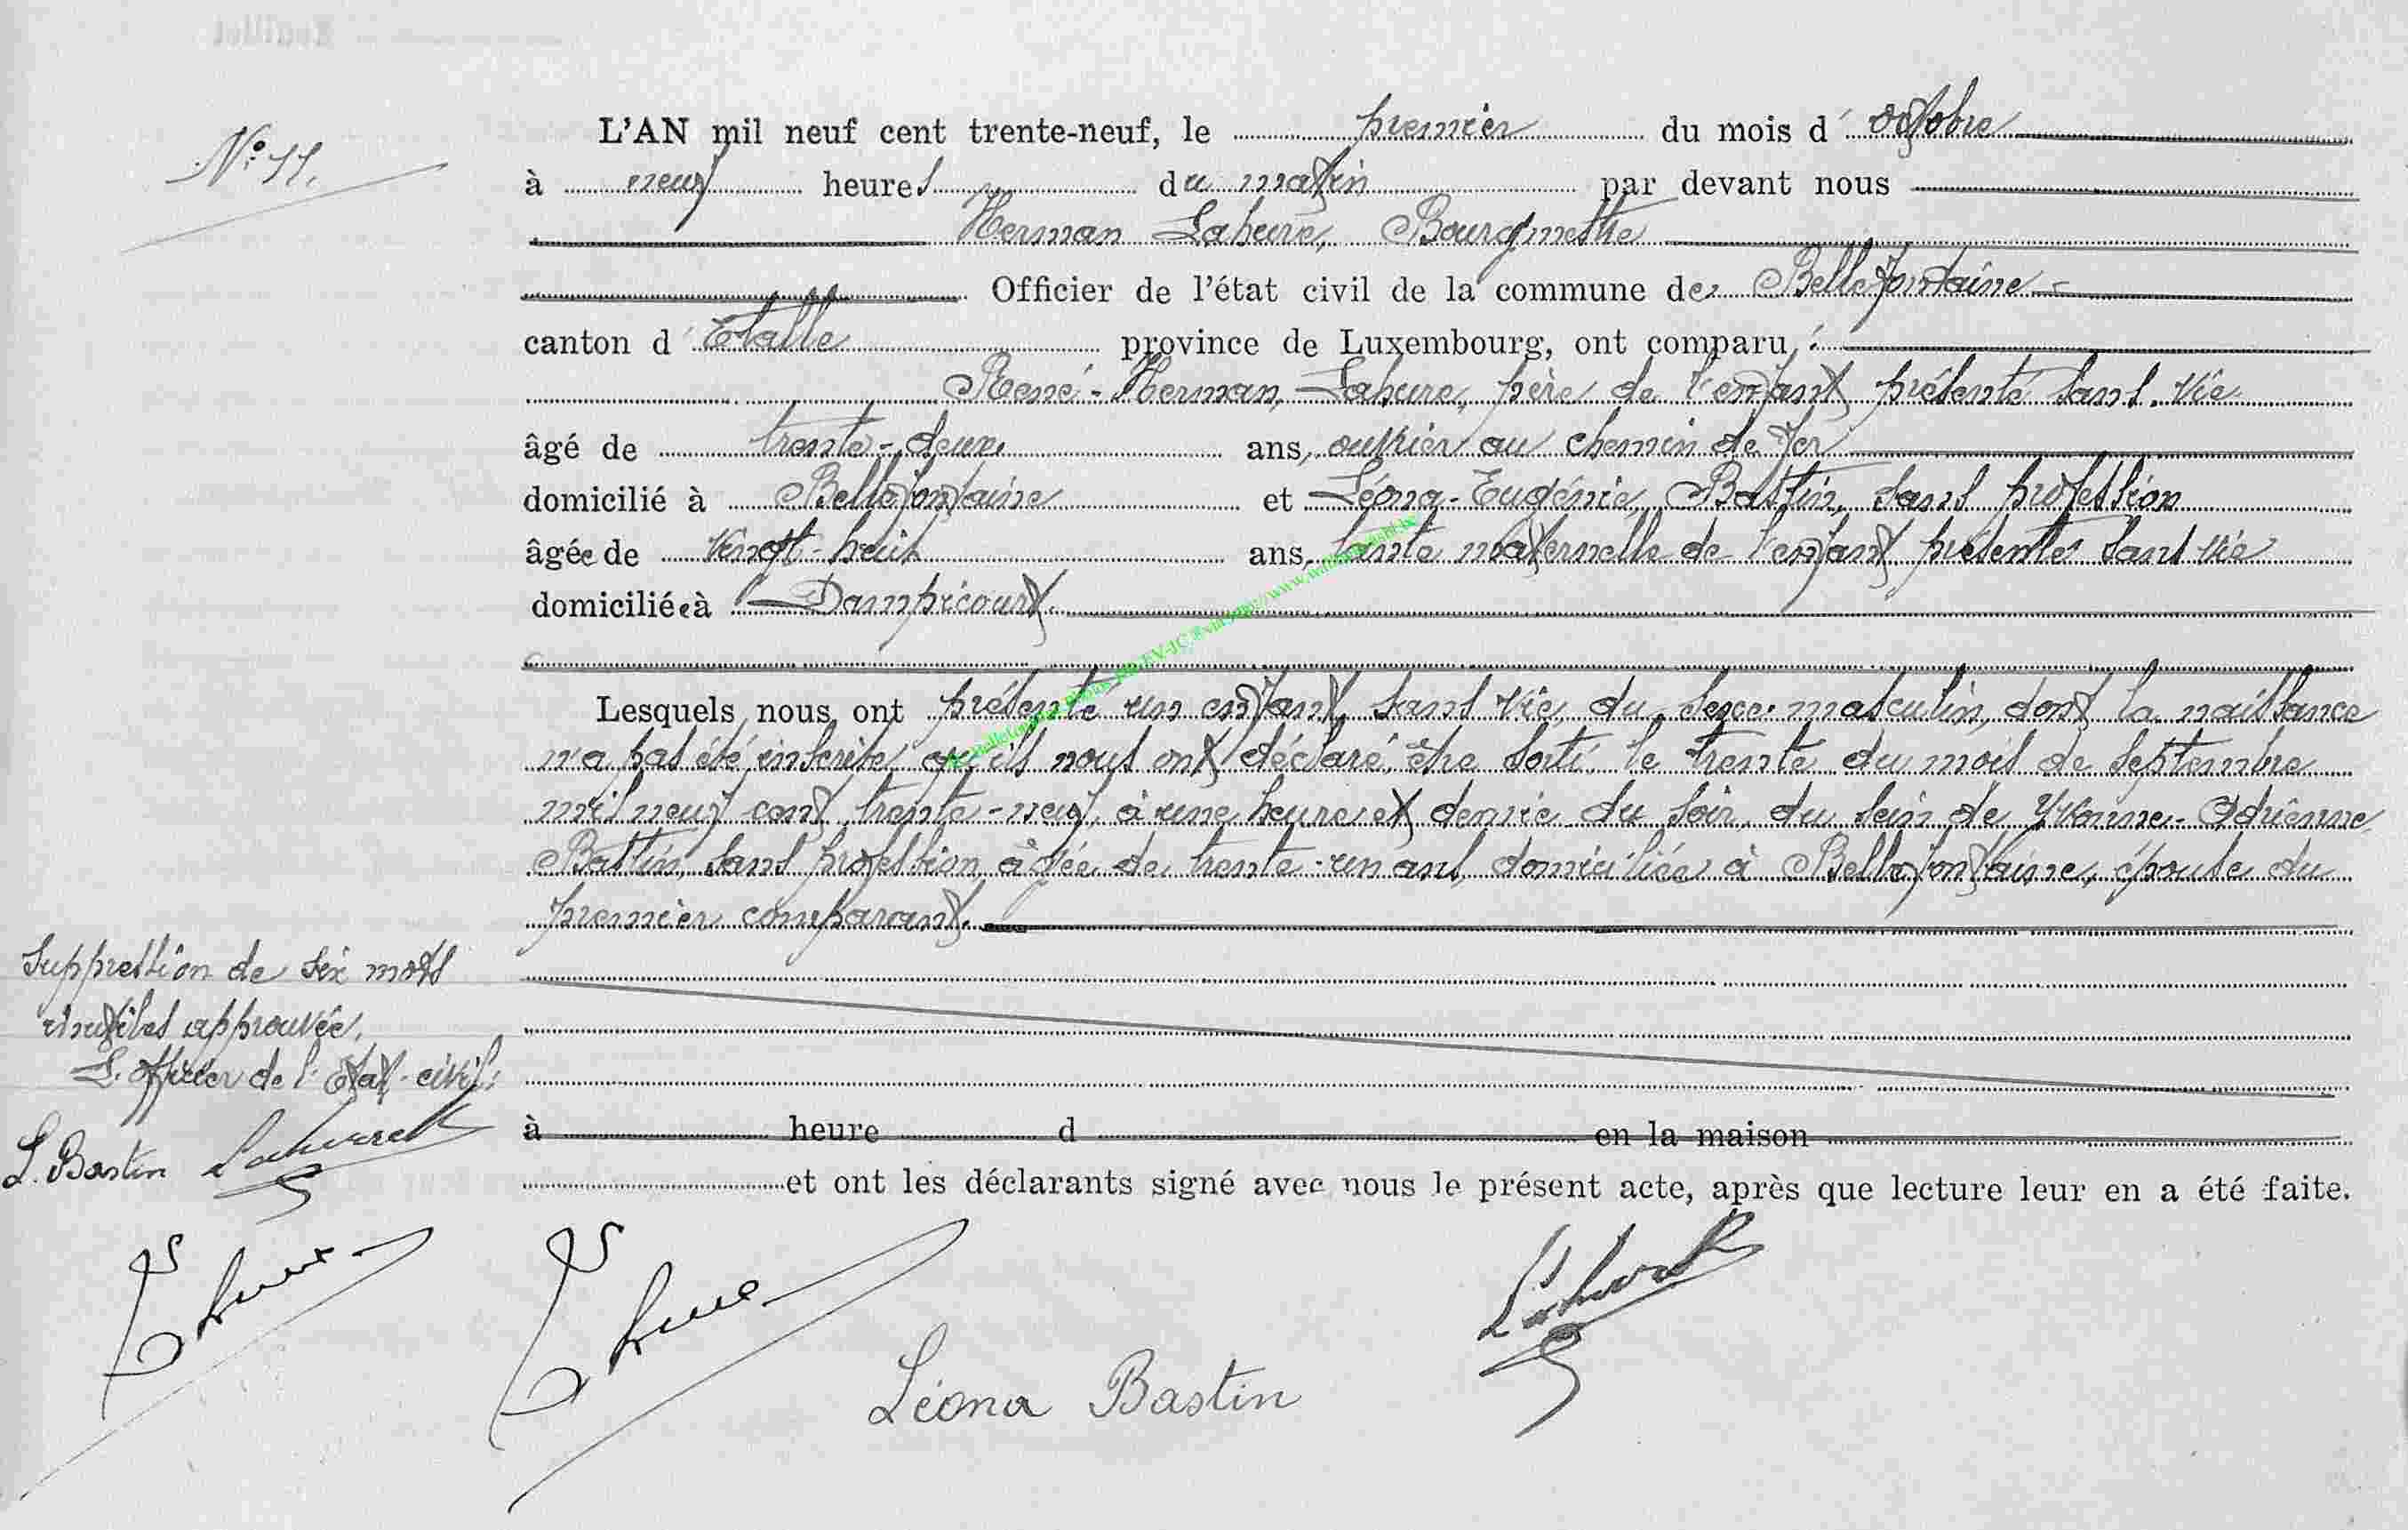 N° 11.
L'AN mil neuf cent trente-neuf, le premier du mois d'octobre
à neuf heures du matin par devant nous
Herman Lahure, Bourgmestre
Officier de l'état civil de la commune de Bellefontaine
canton d'Etalle province de Luxembourg, ont comparu :
René-Herman, Lahure, père de l'enfant présenté sans vie
âgé de trente-deux ans, ouvrier au chemin de fer
domicilié à Bellefontaine et Léona-Eugénie, Bastin, sans profession
âgée de vingt-huit ans, tante maternelle de l'enfant présenté sans vie
domiciliée à Dampicourt.
Lesquels nous ont présenté un enfant, sans vie, du sexe masculin, dont la naissance
n'a pas été inscrite, qu'ils nous ont déclaré, être sorti, le trente du mois de septembre
mil neuf cent trente-neuf, à une heure et demie du soir, du sein de Yvonne-Adrienne,
Bastin, sans profession, âgée de trente-un ans, domiciliée à Bellefontaine, épouse du
premier comparant.
Suppression de six mots
inutiles approuvée.
L'officier de l'Etat-civil,
L. Bastin Lahure
à heure d en la maison
et ont les déclarants signé avec nous le présent acte, après que lecture leur en a été faite.
Léona Bastin